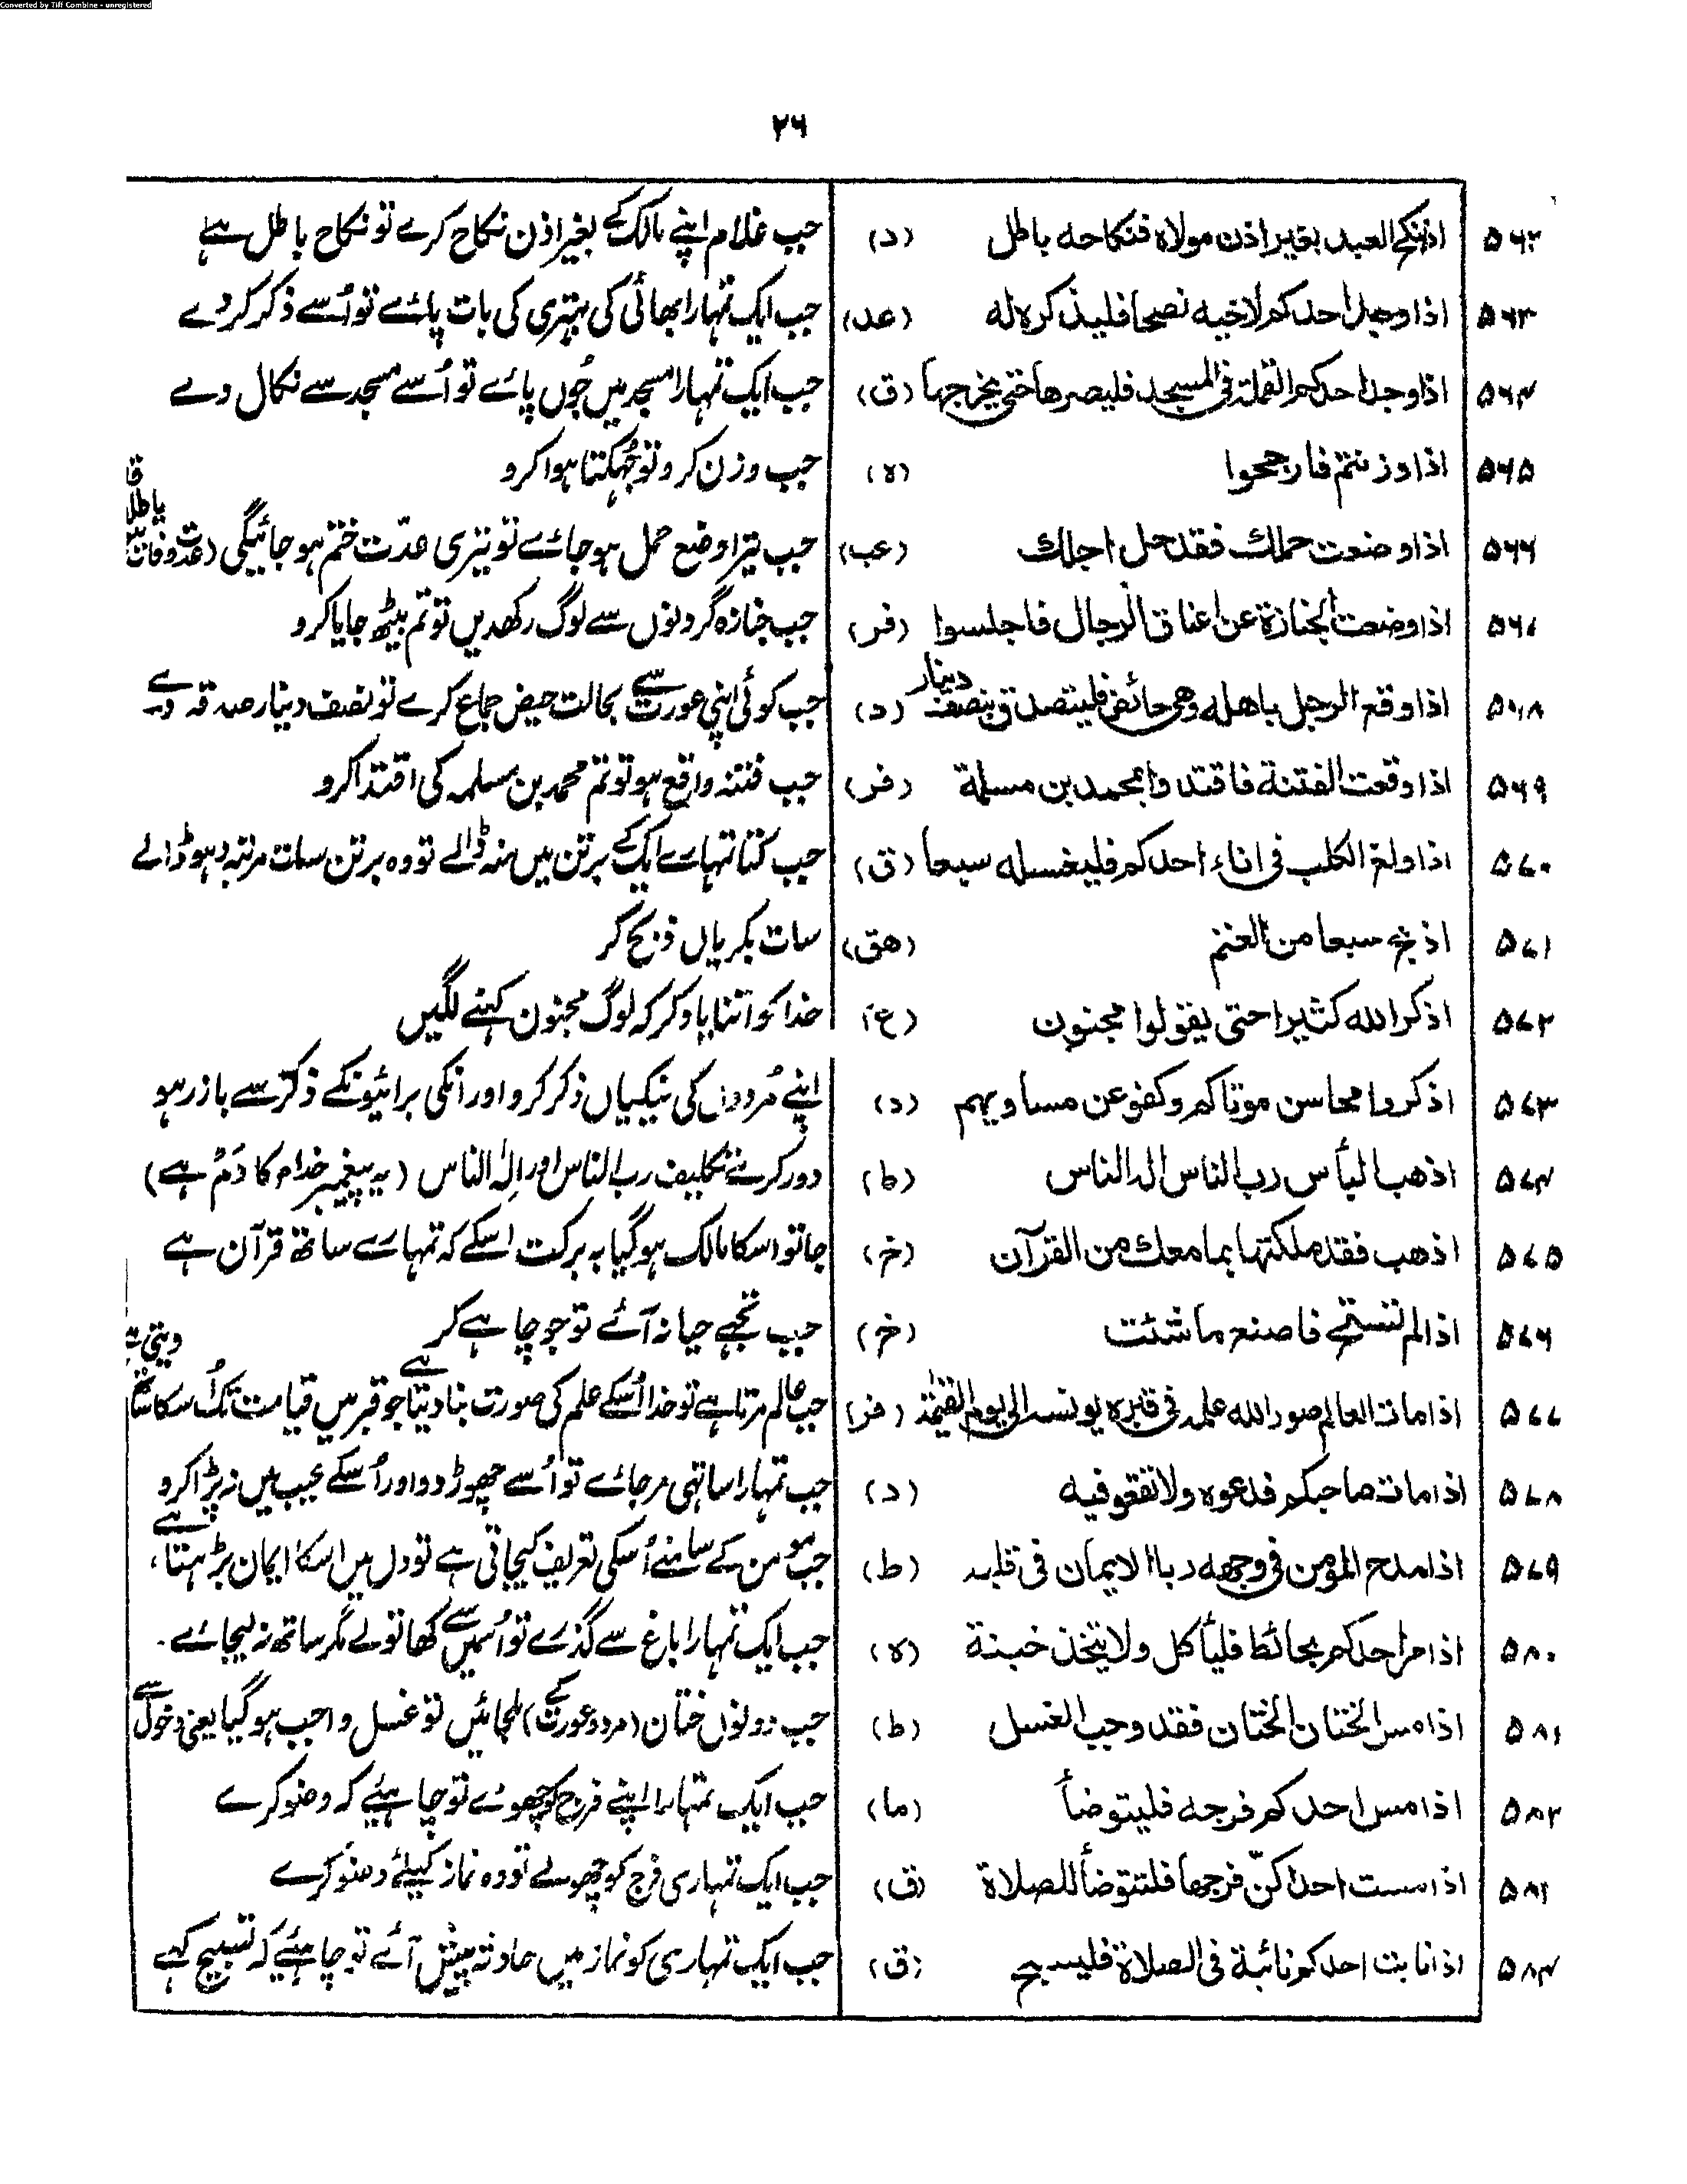 Converted by Tiff Combine - unregistered
۲۶
۵۶۲ اذا نکح العبد بغیر اذن مولاه فنکاحه باطل (د) جب غلام اپنے مالک کے بغیر اذن نکاح کرے تو نکاح باطل ہے
۵۶۳ اذا وجد احدکم لاخیه نصحا فلیذکره له (عد) جب ایک تمہارا بھائی کی بہتری کی بات پائے تو اُسے ذکر کر دے
۵۶۴ اذا وجد احدکم القملة فی المسجد فلیصرها حتی یخرجها (ق) جب ایک تمہارا مسجد میں جُوں پائے تو اُسے مسجد سے نکال دے
۵۶۵ اذا وزنتم فارجحوا (ه) جب وزن کرو تو جُھکتا ہوا کرو
۵۶۶ اذا وضعت حملك فقد حل اجلك (عب) جب تیرا وضع حمل ہو جائے تو تیری عدّت ختم ہو جائیگی
۵۶۷ اذا وضعت الجنازة عن اعناق الرجال فاجلسوا (فر) جب جنازہ گردنوں سے لوگ رکھدیں تو تم بیٹھ جایا کرو
۵۶۸ اذا وقع الرجل باهله وهی حائض فلیتصدق بنصف دینار (د) جب کوئی اپنی عورت سے بحالت حیض جماع کرے تو نصف دینار صدقہ دے
۵۶۹ اذا وقعت الفتنة فاقتدوا بمحمد بن مسلمة (فر) جب فتنہ واقع ہو تو تم محمد بن مسلمہ کی اقتدا کرو
۵۷۰ اذا ولغ الکلب فی اناء احدکم فلیغسله سبعا (ق) جب کتا تمہارے ایک کے برتن میں منہ ڈالے تو وہ برتن سات مرتبہ دہو ڈالے
۵۷۱ اذبح سبعا من الغنم (هق) سات بکریاں ذبح کر
۵۷۲ اذکر الله کثیرا حتی یقولوا مجنون (ع) خدا کو اتنا یاد کر کہ لوگ مجنون کہنے لگیں
۵۷۳ اذکروا محاسن موتاکم وکفو عن مساویهم (د) اپنے مُردوں کی نیکیاں ذکر کرو اور انکی برائیونکے ذکر سے باز رہو
۵۷۴ اذهب البأس رب الناس اله الناس (ط) دور کر نے تکلیف رب الناس اور الٰہ الناس (یہ پیغمبر خدام کا دَم ہے)
۵۷۵ اذهب فقد ملکتها بما معك من القرآن (خ) جا تو اسکا مالک ہو گیا بہ برکت اسکے کہ تمہارے ساتھ قرآن ہے
۵۷۶ اذا لم تستحی فاصنع ما شئت (خ) جب تجھے حیا نہ آئے تو جو چاہے کر
۵۷۷ اذا مات العالم صور الله علمه فی قبره یونسه الی یوم القیٰمة (فر) جب عالم مرتا ہے تو خدا اُسکے علم کی صورت بنا دیتا ہے جو قبر میں قیامت تک اُسکا
۵۷۸ اذا مات صاحبکم فدعوه ولا تقعو فیه (د) جب تمہارا ساتھی مر جائے تو اُسے چھوڑ دو اور اُسکے عیب میں نہ پڑا کرو
۵۷۹ اذا مدح المؤمن فی وجهه ربا الایمان فی قلبه (ط) جب مومن کے سامنے اُسکی تعریف کیجاتی ہے تو دل میں اسکا ایمان بڑہتا ہے
۵۸۰ اذا مر احدکم بحائط فلیأکل ولا یتخذ خبنة (ه) جب ایک تمہارا باغ سے گذرے تو اُسمیں سے کھا تو لے مگر ساتھ نہ لیجائے۔
۵۸۱ اذا مس الختان الختان فقد وجب الغسل (ط) جب دونوں ختان (مرد و عورت کے) ملجائیں تو غسل واجب ہو گیا یعنی دخول سے
۵۸۲ اذا مس احدکم فرجه فلیتوضأ (ما) جب ایک تمہارا اپنے فرج کو چھوئے تو چاہیئے کہ وضو کرے
۵۸۳ اذا مست احدٰکنّ فرجها فلتتوضأ للصلاة (ق) جب ایک تمہاری فرج کو چھولے تو وہ نماز کیلئے وضو کرے
۵۸۴ اذا نابت احدکم نائبة فی الصلاة فلیسبح (ق) جب ایک تمہاری کو نماز میں حادثہ پیش آئے تو چاہئے کہ تسبیح کہے